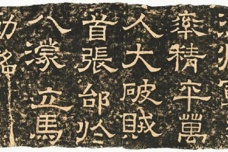 漢將軍
率精卒萬
人大破賊
首張郃於
八濛立馬
勒銘